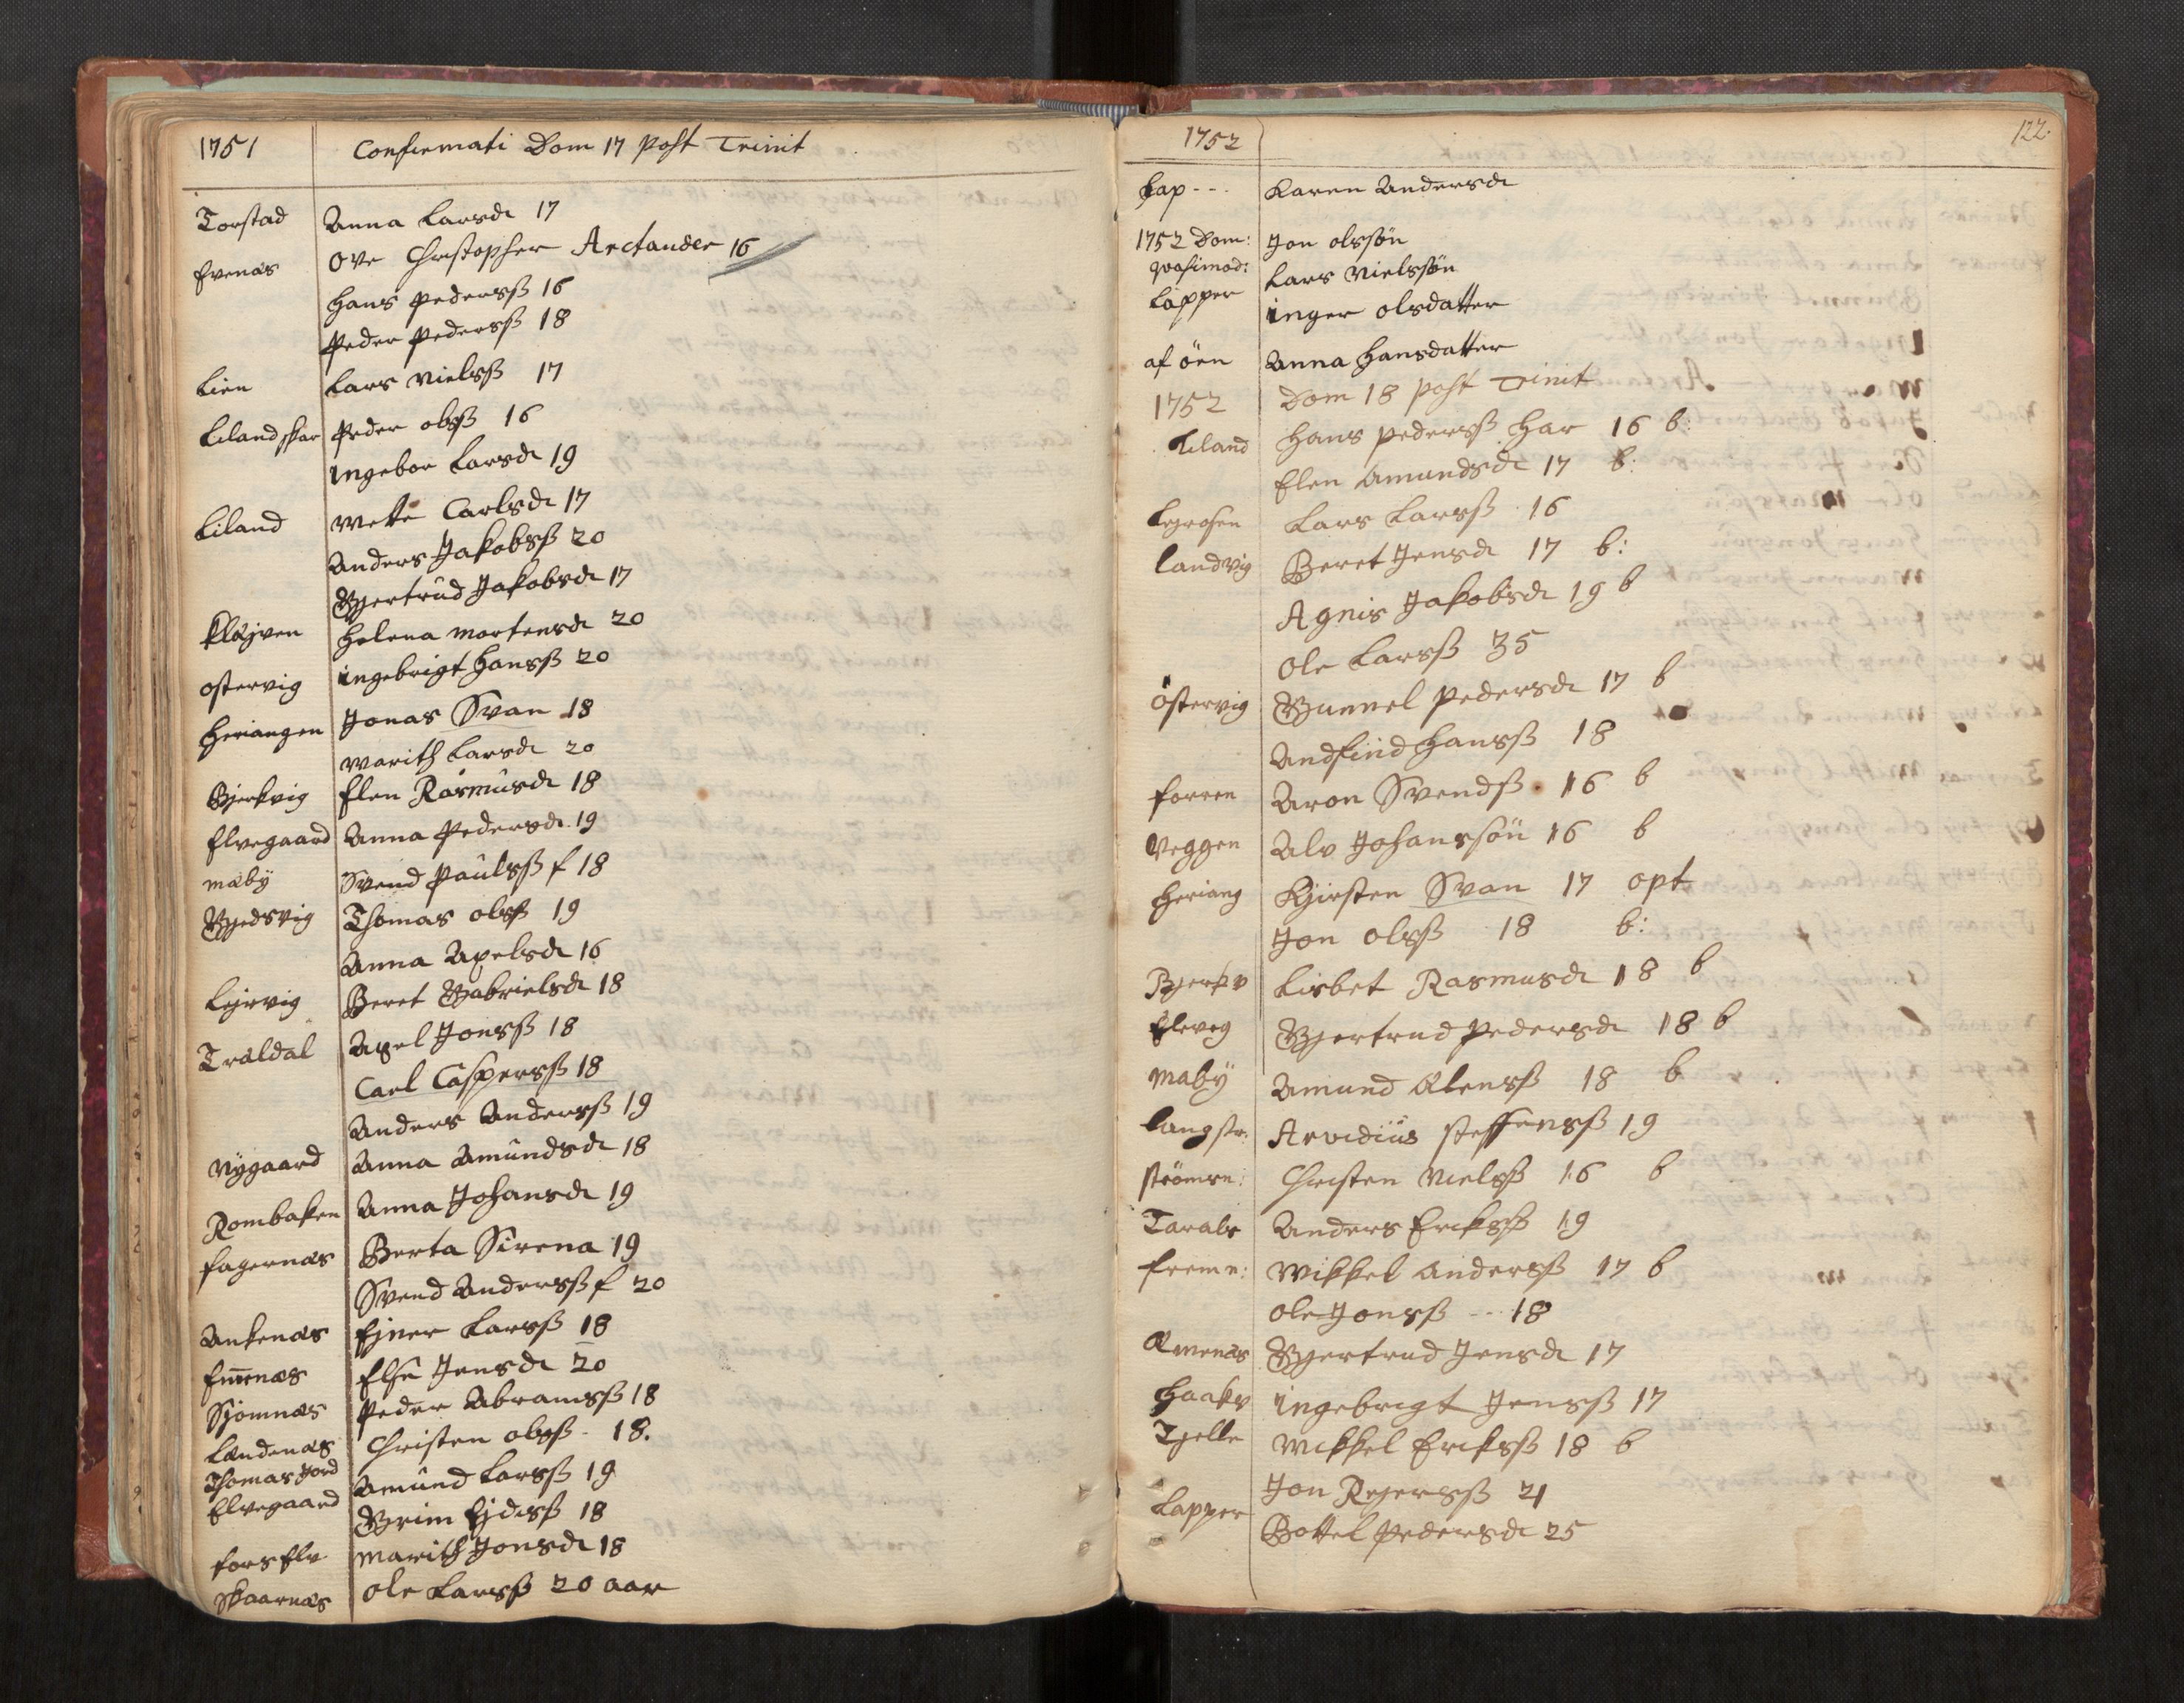 1751 Confirmati Dom 17 post Trinit
Torstad Anna Larsd 17
Evenæs Ove Christopher Arctander 16
Hans Pederss 16
Peder Pederss 18
Lien Lars Nielss 17
Lilandskar Peder olss 16
Ingebor Larsd 19
Liland Mette Carlsd 17
Anders Jakobss 20
Gjertrud Jakobsd 17
Kläjven Helena Mortensd 20
Ostervig Ingebrigt Hanss 20
Heriangen Jonas Svan 18
Marith Larsd 20
Bjerkvig Elen Rasmusd 18
Elvegaard Anna Pedersd 19
mæby Svend Paulss f 18
Gjedsvig Thomas olss 19
Anna Axelsd 16
Lejrvig Beret Gabrielsd 18
Traldal Axel Jonss 18
Carl Casperss 18
Anders Anderss 19
Nygaard Anna Amundsd 18
Rombaken Anna Johansd 19
Fagernæs Berta Sirena 19
Svend Anderss f 20
Ankenæs Ejner Larss 18
Emenæs Else Jensd 20
Sjomnæs Peder Abramss 18
Landenæs Christen olss 18.
Thomasjord Amund Larss 19
Elvegaard Grim Ejdess 18
Fors Elv Marith Jonsd 18
Skaarnæs Ole Larss 20 aar
1752 122.
Lap--. Karen Andersd
1752 Dom: Jon olssøn
qvasimod: Lars Nielssøn
Lapper Inger olsdatter
af öen Anna Hansdatter
1752 Dom 18 post Trinit
Liland Hans Pederss Har 16 b:
Elen Amundsd 17 b:
Lejrosen Lars Larss 16
Landvig Beret Jensd 17 b:
Agnis Jakobsd 19 b
Ole Larss 35
Östervig Gunnel Pedersd 17 b
Andfind Hanss 18
Forren Aron Svendss 16 b
Veggen Alv Johanssøn 16 b
Heriang Kjirsten Svan 17 opt
Jon olss 18 b:
Bjerkv Lisbet Rasmusd 18 b
Elveg Gjertrud Pedersd 18 b
Mæby Amund Olenss 18 b
Langstr: Arvidius Steffenss 19
Strömsn: Christen Nielss 16 b
Tarald Anders Erikss 19
Fremn: Mikkel Anderss 17 b
Ole Jonss -- 18
Æmenæs Gjertrud Jensd 17
Haakv Ingebrigt Jenss 17
Tjelle Mikkel Erikss 18 b
Jon Rejerss 21
Lapper Bottel Pedersd 25